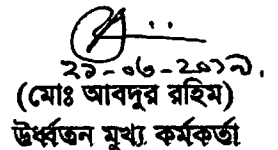 ২১-০৬-২০১৭.
(মোঃ আবদুর রহিম)
উর্ধ্বতন মুখ্য কর্মকর্তা